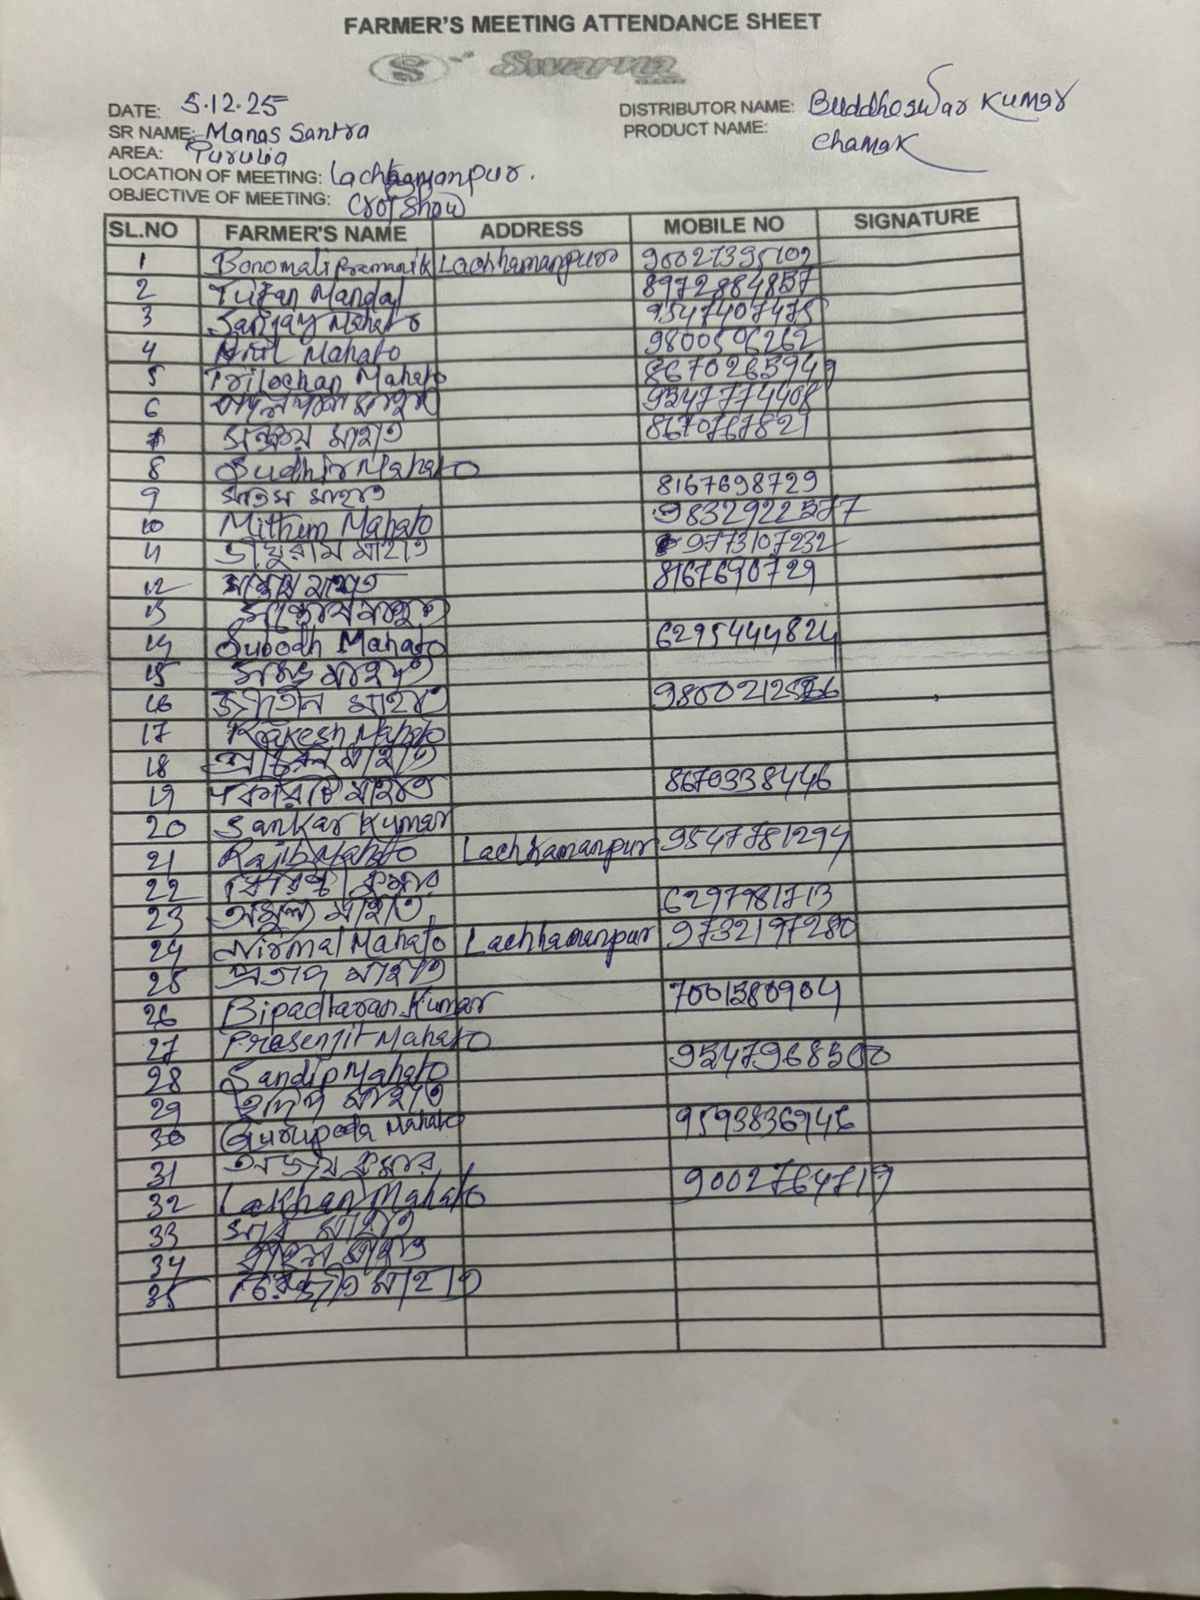 FARMER'S MEETING ATTENDANCE SHEET
S Swarna
DATE: 5.12.25
DISTRIBUTOR NAME: Buddheswar Kumar
SR NAME: Manas Santra
PRODUCT NAME: Chamak
AREA: Purulia
LOCATION OF MEETING: Lachhamanpur.
OBJECTIVE OF MEETING: Crop Show
SL.NO FARMER'S NAME ADDRESS MOBILE NO SIGNATURE
1 Bonomali Pramanik Lachhamanpur 9002735102
2 Tufan Mandal 8972884857
3 Sanjay Mahato 9547407475
4 Anil Mahato 9800506262
5 Trilochan Mahato 8670265949
6 মাহাত 9547774408
7 সঞ্জয় মাহাত 8670767821
8 Sudhir Mahato
9 মাহাত 8167698729
10 Mithun Mahato 9832922577
11 মাহাত 9773107232
12 সন্তোষ মাহাত 8167690729
13 সন্তোষ মাহাত
14 Subodh Mahato 6295444824
15 মাহাত
16 মাহাত 9800212566
17 Rakesh Mahato
18 মাহাত
19 মাহাত 8670338446
20 Sankar Kumar
21 Rajib Mahato Lachhamanpur 9547781294
22 কুমার
23 অমূল্য মাহাত 6297981713
24 Nirmal Mahato Lachhamanpur 9732197280
25 প্রতাপ মাহাত
26 Bipadtaran Kumar 7001580904
27 Prasenjit Mahato
28 Sandip Mahato 9547968500
29 মাহাত
30 Gurupada Mahato 9593836946
31 অজয় কুমার
32 Lakhan Mahato 9002764719
33 মাহাত
34 মাহাত
35 মাহাত